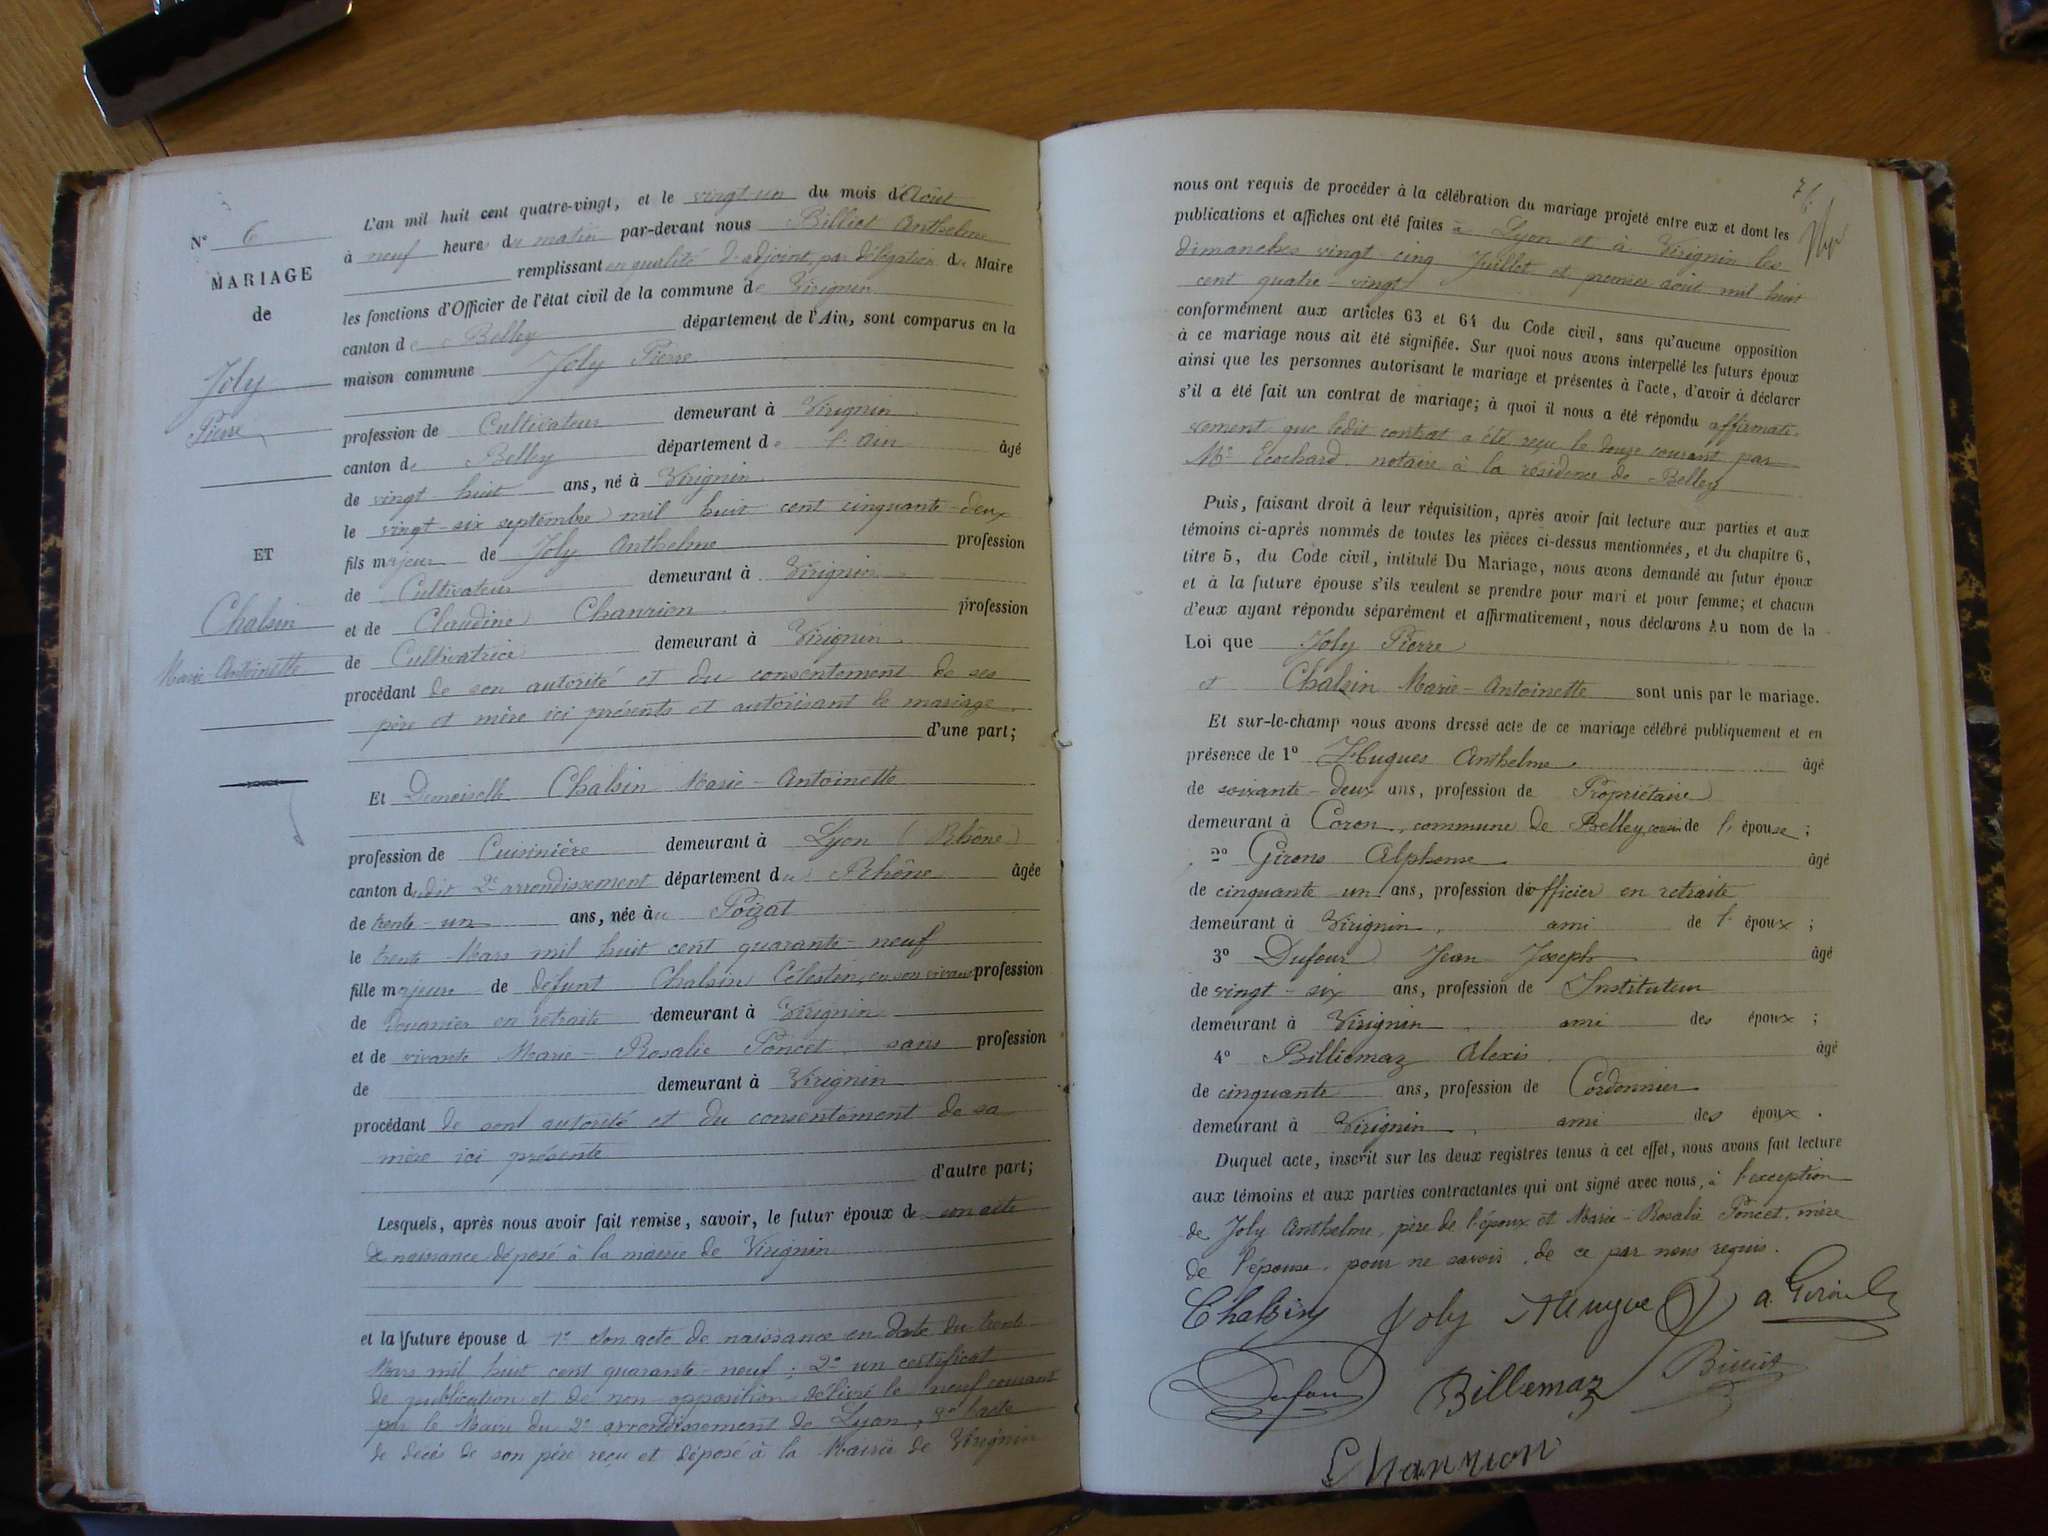 N° 6
MARIAGE
de
Joly
Pierre
ET
Chalsin
Marie Antoinette
L'an mil huit cent quatre-vingt, et le vingt-un du mois d'Août
à neuf heures du matin par-devant nous Billiet Anthelme
remplissant en qualité d'adjoint, par délégation du Maire
les fonctions d'Officier de l'état civil de la commune de Virignin
canton de Belley département de l'Ain, sont comparus en la
maison commune Joly Pierre
profession de Cultivateur demeurant à Virignin
canton de Belley département de l'Ain âgé
de vingt-huit ans, né à Virignin
le vingt-six septembre mil huit cent cinquante-deux
fils majeur de Joly Anthelme profession
de Cultivateur demeurant à Virignin
et de Claudine Chanrion profession
de Cultivatrice demeurant à Virignin
procédant de son autorité et du consentement de ses
père et mère ici présents et autorisant le mariage
d'une part;
Et Demoiselle Chalsin Marie-Antoinette
profession de Cuisinière demeurant à Lyon (Rhône)
canton dudit 2e arrondissement département du Rhône âgée
de trente-un ans, née au Poizat
le trente Mars mil huit cent quarante-neuf
fille majeure de défunt Chalsin Célestin, en son vivant profession
de Douanier en retraite demeurant à Virignin
et de vivante Marie-Rosalie Poncet sans profession
de demeurant à Virignin
procédant de son autorité et du consentement de sa
mère ici présente
d'autre part;
Lesquels, après nous avoir fait remise, savoir, le futur époux de son acte
de naissance déposé à la mairie de Virignin
et la future épouse d 1° son acte de naissance en date du trente
Mars mil huit cent quarante-neuf; 2° un certificat
de publication et de non opposition délivré le neuf courant
par le Maire du 2e arrondissement de Lyon, 3° l'acte
de décès de son père reçu et déposé à la Mairie de Virignin
nous ont requis de procéder à la célébration du mariage projeté entre eux et dont les
publications et affiches ont été faites à Lyon et à Virignin les
dimanches vingt-cinq Juillet et premier août mil huit
cent quatre-vingt
conformément aux articles 63 et 64 du Code civil, sans qu'aucune opposition
à ce mariage nous ait été signifiée. Sur quoi nous avons interpellé les futurs époux
ainsi que les personnes autorisant le mariage et présentes à l'acte, d'avoir à déclarer
s'il a été fait un contrat de mariage; à quoi il nous a été répondu affirmati-
vement que ledit contrat a été reçu le douze courant par
Me Ecochard notaire à la résidence de Belley
Puis, faisant droit à leur réquisition, après avoir fait lecture aux parties et aux
témoins ci-après nommés de toutes les pièces ci-dessus mentionnées, et du chapitre 6,
titre 5, du Code civil, intitulé Du Mariage, nous avons demandé au futur époux
et à la future épouse s'ils veulent se prendre pour mari et pour femme; et chacun
d'eux ayant répondu séparément et affirmativement, nous déclarons Au nom de la
Loi que Joly Pierre
et Chalsin Marie-Antoinette sont unis par le mariage.
Et sur-le-champ nous avons dressé acte de ce mariage célébré publiquement et en
présence de 1° Hugues Anthelme âgé
de soixante-deux ans, profession de Propriétaire
demeurant à Coron, commune de Belley, cousin de l'épouse;
2° Girons Alphonse âgé
de cinquante un ans, profession d'officier en retraite
demeurant à Virignin, ami de l'époux;
3° Dufour Jean Joseph âgé
de vingt-six ans, profession de Instituteur
demeurant à Virignin, ami des époux;
4° Billiemaz Alexis âgé
de cinquante ans, profession de Cordonnier
demeurant à Virignin, ami des époux.
Duquel acte, inscrit sur les deux registres tenus à cet effet, nous avons fait lecture
aux témoins et aux parties contractantes qui ont signé avec nous, à l'exception
de Joly Anthelme, père de l'époux et Marie-Rosalie Poncet, mère
de l'épouse, pour ne savoir, de ce par nous requis.
Chalsin Joly Hugues
Dufour Billemaz Billiet
Chanrion